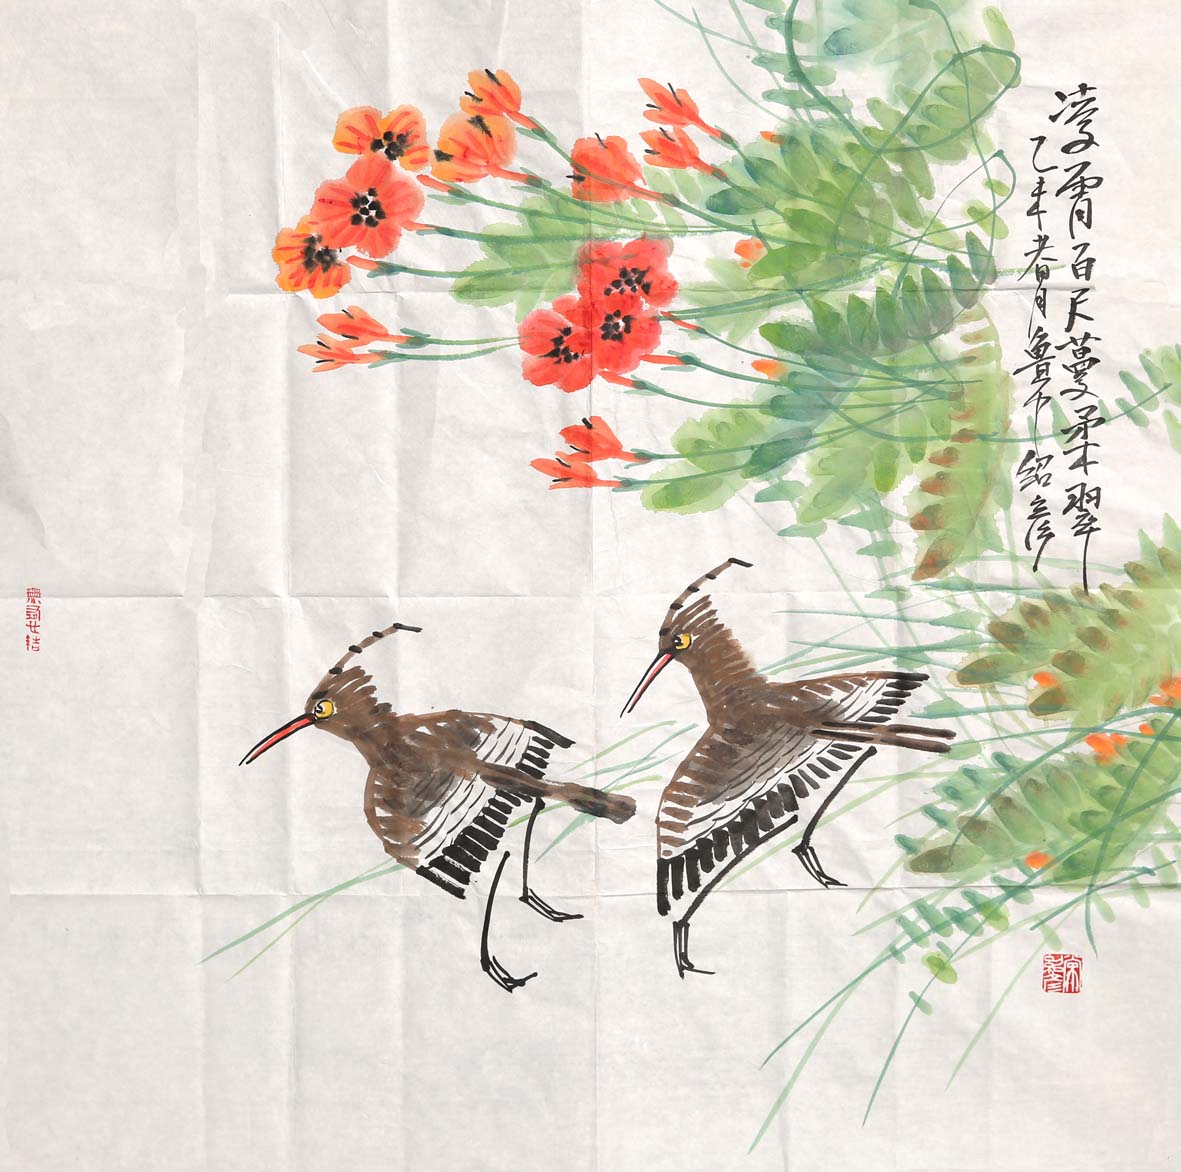 凌霄百尺蔓柔翠
乙未春月魯中紹彦